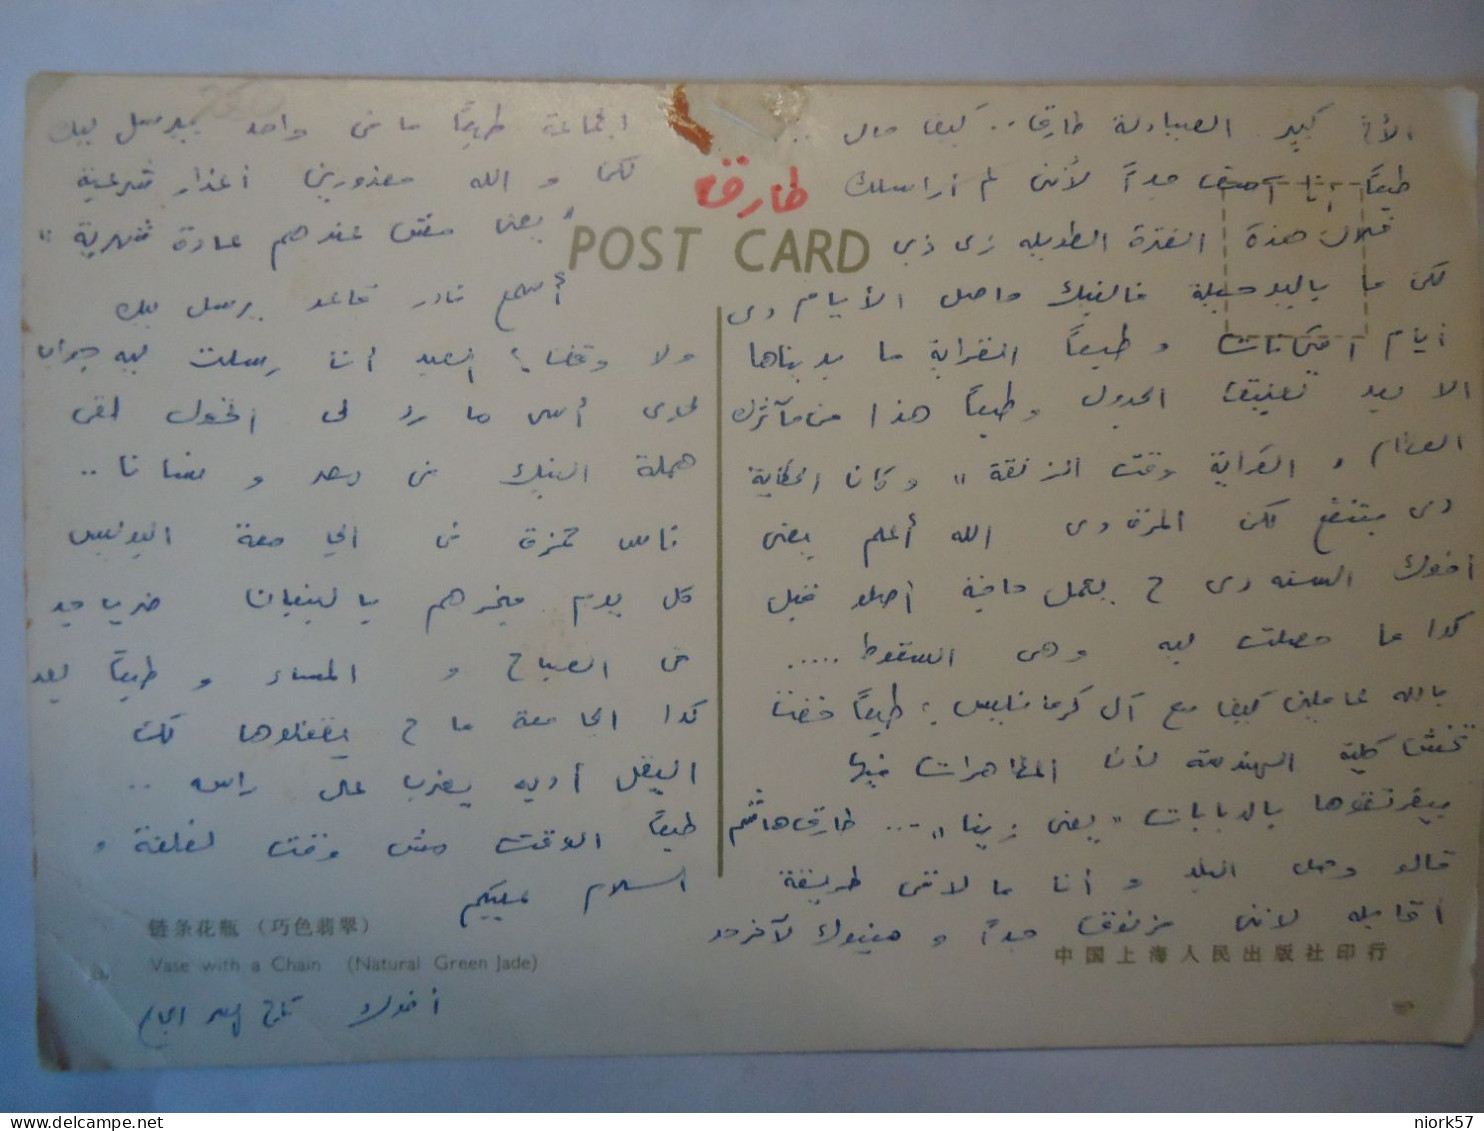 الأخ كبير الصيادلة طارق .. كيف حال ...
طبعاً أنا آسف جداً لأننى لم أراسلك
خلال هذة الفترة الطويله زى ذى
لكن ما باليد حيلة فالفيك حاصل الأيام دى
أيام امتحانات وطبعاً القراية ما بديناها
الا بعد تعليق الجدول وطبعاً هذا من مآثرك
العظام , القراية وقت الزنقة " وكان الحكاية
دى بتنفع لكن المرة دى الله أعلم يعنى
أخوك السنه دى ح يعمل حاجة أصلو قبل
كدا ما حصلت ليه وهى السقوط .....
بالله عاملين كيف مع آل كرمانلييس ؛ طبعاً خفت
تخش كلية الهندسة لأن المظاهرات فيها
بيفرتقوها بالدبابات " يعنى زينا " ... طارق هاشم
قالو وصل البلد و أنا ما لاقى طريقة
أقابله لأننى مزنوق جداً و هنيوك لآخر حد
طارق
POST CARD
الجماعة طبعاً ما فى واحد بيرسل ليك
لكن و الله معذورين أعذار شرعية
" يعنى مش عندهم عادة شهرية "
أسمع نادر قاعد يرسل ليك
ولا وقف ؛ العبد أنا رسلت ليه جواب
لحدى أسى ما رد لى الخول لقى
هملة البنك من بعد و نسانا ..
ناس حمزة فى الجامعة البوليس
كل يوم مبخرهم بالبنبان ضرب جد
فى الصباح و المساء و طبعاً بعد
كدا الجامعة ما ح يقفلوها لكن
البقل أديه يضرب على راسه ..
طبعاً الوقت مش وقت لغلغة و
السلام عليكم
链条花瓶 (巧色翡翠)
Vase with a Chain (Natural Green Jade)
中国上海人民出版社印行
أخوك تاج السر الحاج
niork57